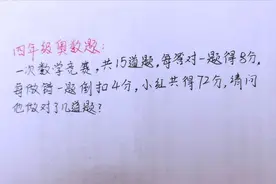 四年级奥数题:
一次数学竞赛,共15道题,每答对一题得8分,
每做错一题倒扣4分,小红共得72分,请问
他做对了几道题?